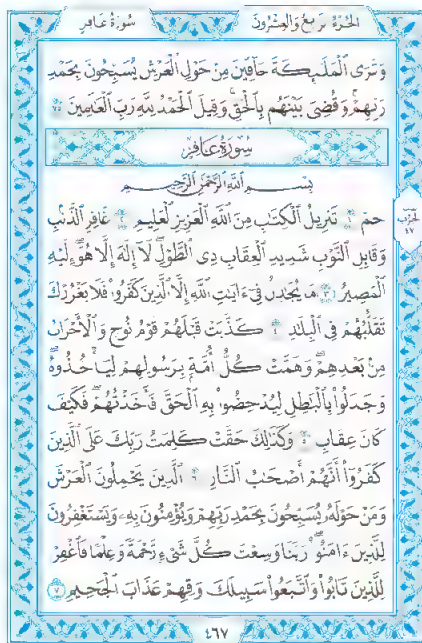 الجزء الرابع والعشرون سورة غافر
وَتَرَى ٱلْمَلَٰٓئِكَةَ حَآفِّينَ مِنْ حَوْلِ ٱلْعَرْشِ يُسَبِّحُونَ بِحَمْدِ
رَبِّهِمْ وَقُضِىَ بَيْنَهُم بِٱلْحَقِّ وَقِيلَ ٱلْحَمْدُ لِلَّهِ رَبِّ ٱلْعَٰلَمِينَ ٧٥
سورة غافر
بِسْمِ ٱللَّهِ ٱلرَّحْمَٰنِ ٱلرَّحِيمِ
حمٓ ١ تَنزِيلُ ٱلْكِتَٰبِ مِنَ ٱللَّهِ ٱلْعَزِيزِ ٱلْعَلِيمِ ٢ غَافِرِ ٱلذَّنۢبِ
وَقَابِلِ ٱلتَّوْبِ شَدِيدِ ٱلْعِقَابِ ذِى ٱلطَّوْلِ لَآ إِلَٰهَ إِلَّا هُوَ إِلَيْهِ
ٱلْمَصِيرُ ٣ مَا يُجَٰدِلُ فِىٓ ءَايَٰتِ ٱللَّهِ إِلَّا ٱلَّذِينَ كَفَرُوا۟ فَلَا يَغْرُرْكَ
تَقَلُّبُهُمْ فِى ٱلْبِلَٰدِ ٤ كَذَّبَتْ قَبْلَهُمْ قَوْمُ نُوحٍ وَٱلْأَحْزَابُ
مِنۢ بَعْدِهِمْ وَهَمَّتْ كُلُّ أُمَّةٍۭ بِرَسُولِهِمْ لِيَأْخُذُوهُ
وَجَٰدَلُوا۟ بِٱلْبَٰطِلِ لِيُدْحِضُوا۟ بِهِ ٱلْحَقَّ فَأَخَذْتُهُمْ فَكَيْفَ
كَانَ عِقَابِ ٥ وَكَذَٰلِكَ حَقَّتْ كَلِمَتُ رَبِّكَ عَلَى ٱلَّذِينَ
كَفَرُوٓا۟ أَنَّهُمْ أَصْحَٰبُ ٱلنَّارِ ٦ ٱلَّذِينَ يَحْمِلُونَ ٱلْعَرْشَ
وَمَنْ حَوْلَهُۥ يُسَبِّحُونَ بِحَمْدِ رَبِّهِمْ وَيُؤْمِنُونَ بِهِۦ وَيَسْتَغْفِرُونَ
لِلَّذِينَ ءَامَنُوا۟ رَبَّنَا وَسِعْتَ كُلَّ شَىْءٍ رَّحْمَةً وَعِلْمًا فَٱغْفِرْ
لِلَّذِينَ تَابُوا۟ وَٱتَّبَعُوا۟ سَبِيلَكَ وَقِهِمْ عَذَابَ ٱلْجَحِيمِ ٧
٤٦٧